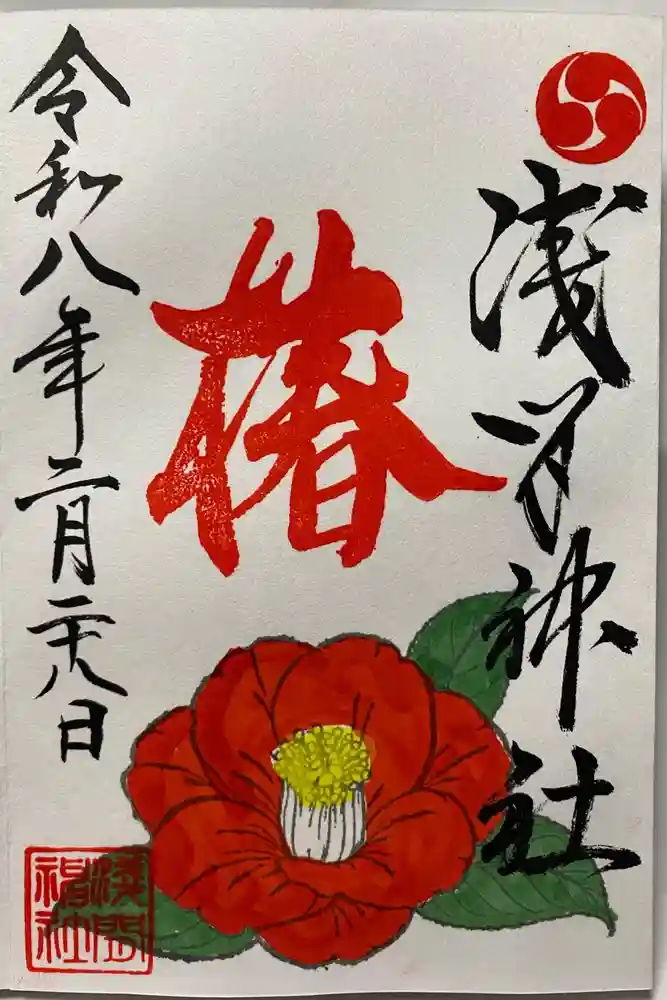 浅間神社
椿
令和八年二月二十八日
淺間
神社